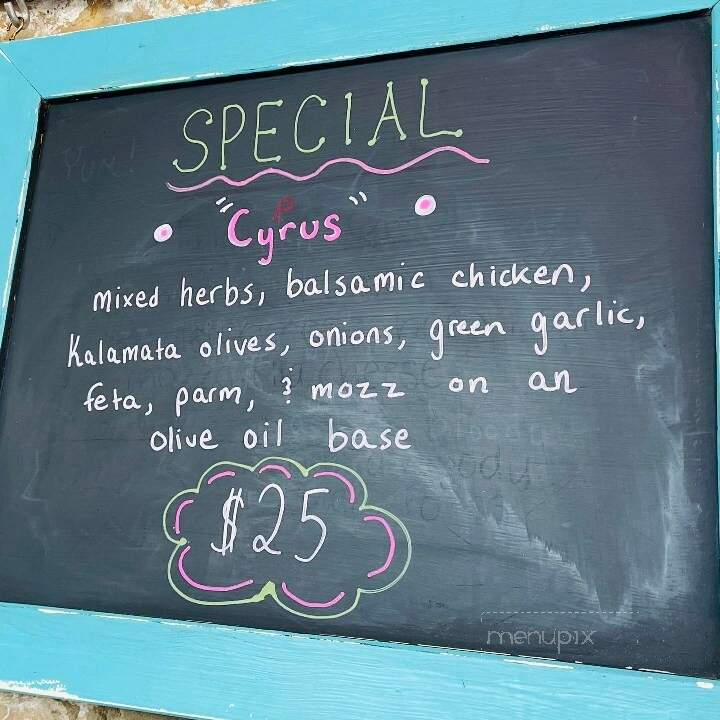 SPECIAL
"Cyrus"
mixed herbs, balsamic chicken,
Kalamata olives, onions, green garlic,
feta, parm, & mozz on an
olive oil base
$25
menupix